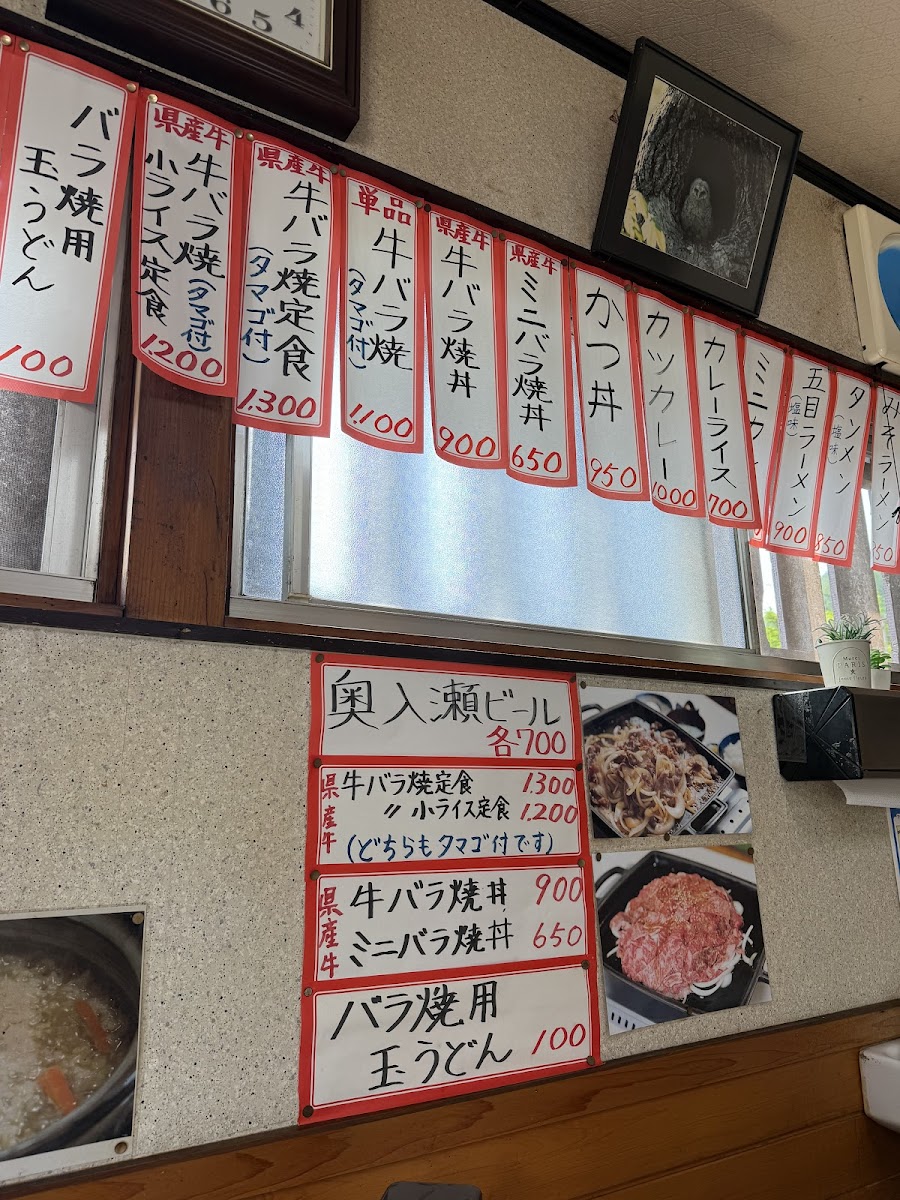 4
5
6
バラ焼用
玉うどん
100
県産牛
牛バラ焼(タマゴ付)
小ライス定食
1200
県産牛
牛バラ焼定食
(タマゴ付)
1,300
単品
牛バラ焼
(タマゴ付)
1,100
県産牛
牛バラ焼丼
900
県産牛
ミニバラ焼丼
650
かつ丼
950
カツカレー
1000
カレーライス
700
ミニカ
五目ラーメン
(塩味)
900
タンメン
(塩味)
850
みそラーメン
奥入瀬ビール
各700
県産牛
牛バラ焼定食 1,300
〃 小ライス定食 1,200
(どちらもタマゴ付です)
県産牛
牛バラ焼丼 900
ミニバラ焼丼 650
バラ焼用
玉うどん 100
PARIS